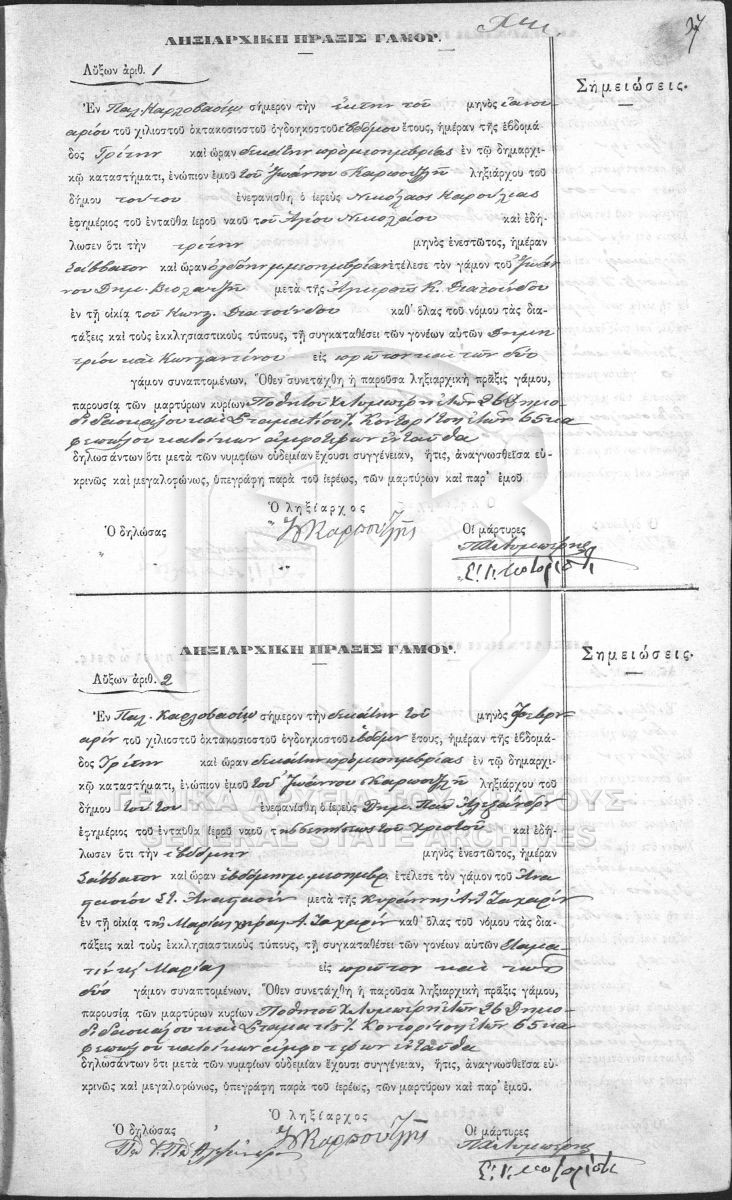 37
ΛΗΞΙΑΡΧΙΚΗ ΠΡΑΞΙΣ ΓΑΜΟΥ.
Αὔξων ἀριθ. 1
Σημειώσεις.
Ἐν Παλ. Καρλοβασίῳ σήμερον τὴν ἕκτην τοῦ μηνὸς Ἰανου-
αρίου τοῦ χιλιοστοῦ ὀκτακοσιοστοῦ ὀγδοηκοστοῦ ἑβδόμου ἔτους, ἡμέραν τῆς ἑβδομά-
δος Τρίτην καὶ ὥραν δεκάτην πρὸ μεσημβρίας ἐν τῷ δημαρχι-
κῷ καταστήματι, ἐνώπιον ἐμοῦ τοῦ Ἰωάννου Καρπούζη ληξιάρχου τοῦ
δήμου τούτου ἐνεφανίσθη ὁ ἱερεὺς Νικόλαος
ἐφημέριος τοῦ ἐνταῦθα ἱεροῦ ναοῦ τοῦ Ἁγίου Νικολάου καὶ ἐδή-
λωσεν ὅτι τὴν τρίτην μηνὸς ἐνεστῶτος, ἡμέραν
Σάββατον καὶ ὥραν μ. μεσημβρίαν ἐτέλεσε τὸν γάμον τοῦ Ἰωάν-
νου Δημ. μετὰ τῆς Κ. Διατσίνδου
ἐν τῇ οἰκίᾳ τοῦ Κωνζ. Διατσίνδου καθ' ὅλας τοῦ νόμου τὰς δια-
τάξεις καὶ τοὺς ἐκκλησιαστικοὺς τύπους, τῇ συγκαταθέσει τῶν γονέων αὐτῶν Δημη-
τρίου καὶ Κωνζαντίνου εἰς πρῶτον καὶ τῶν δύο
γάμον συναπτομένων. Ὅθεν συνετάχθη ἡ παροῦσα ληξιαρχικὴ πρᾶξις γάμου,
παρουσίᾳ τῶν μαρτύρων κυρίων Ποθητοῦ ἐτῶν 26 δημο-
διδασκάλου καὶ Σταματίου Γ. Κοντορίτση ἐτῶν 65 κα-
φεπώλου κατοίκων ἀμφοτέρων ἐνταῦθα
δηλωσάντων ὅτι μετὰ τῶν νυμφίων οὐδεμίαν ἔχουσι συγγένειαν, ἥτις, ἀναγνωσθεῖσα εὐ-
κρινῶς καὶ μεγαλοφώνως, ὑπεγράφη παρὰ τοῦ ἱερέως, τῶν μαρτύρων καὶ παρ' ἐμοῦ
Ὁ ληξίαρχος
Ὁ δηλώσας Ἰ Καρπούζης Οἱ μάρτυρες
ΛΗΞΙΑΡΧΙΚΗ ΠΡΑΞΙΣ ΓΑΜΟΥ.
Αὔξων ἀριθ. 2
Σημειώσεις.
Ἐν Παλ. Καρλοβασίῳ σήμερον τὴν δεκάτην τοῦ μηνὸς Φεβρου-
αρίου τοῦ χιλιοστοῦ ὀκτακοσιοστοῦ ὀγδοηκοστοῦ ἑβδόμου ἔτους, ἡμέραν τῆς ἑβδομά-
δος Τρίτην καὶ ὥραν δεκάτην πρὸ μεσημβρίας ἐν τῷ δημαρχι-
κῷ καταστήματι, ἐνώπιον ἐμοῦ τοῦ Ἰωάννου Καρπούζη ληξιάρχου τοῦ
δήμου τούτου ἐνεφανίσθη ὁ ἱερεὺς Δημ. Παπ Ἀλεξάνδρου
ἐφημέριος τοῦ ἐνταῦθα ἱεροῦ ναοῦ τῆς γεννήσεως τοῦ Χριστοῦ καὶ ἐδή-
λωσεν ὅτι τὴν ἑβδόμην μηνὸς ἐνεστῶτος, ἡμέραν
Σάββατον καὶ ὥραν ἑβδόμην μ. μεσημβρ. ἐτέλεσε τὸν γάμον τοῦ Ἀνα-
στασίου Στ. μετὰ τῆς Κυράννης Ἀ. Ζαχαρίου
ἐν τῇ οἰκίᾳ τῆς Μαρίας χήρας Ἀ. Ζαχαρίου καθ' ὅλας τοῦ νόμου τὰς δια-
τάξεις καὶ τοὺς ἐκκλησιαστικοὺς τύπους, τῇ συγκαταθέσει τῶν γονέων αὐτῶν Σταμα-
τίου κ Μαρίας εἰς πρῶτον καὶ τῶν
δύο γάμον συναπτομένων. Ὅθεν συνετάχθη ἡ παροῦσα ληξιαρχικὴ πρᾶξις γάμου,
παρουσίᾳ τῶν μαρτύρων κυρίων Ποθητοῦ ἐτῶν 26 δημο-
διδασκάλου καὶ Σταματίου Γ. Κοντορίτση ἐτῶν 65 κα-
φεπώλου κατοίκων ἀμφοτέρων ἐνταῦθα
δηλωσάντων ὅτι μετὰ τῶν νυμφίων οὐδεμίαν ἔχουσι συγγένειαν, ἥτις, ἀναγνωσθεῖσα εὐ-
κρινῶς καὶ μεγαλοφώνως, ὑπεγράφη παρὰ τοῦ ἱερέως, τῶν μαρτύρων καὶ παρ' ἐμοῦ.
Ὁ ληξίαρχος
Ὁ δηλώσας Ἰ Καρπούζης Οἱ μάρτυρες
ΓΕΝΙΚΑ ΑΡΧΕΙΑ ΤΟΥ ΚΡΑΤΟΥΣ
GENERAL STATE ARCHIVES